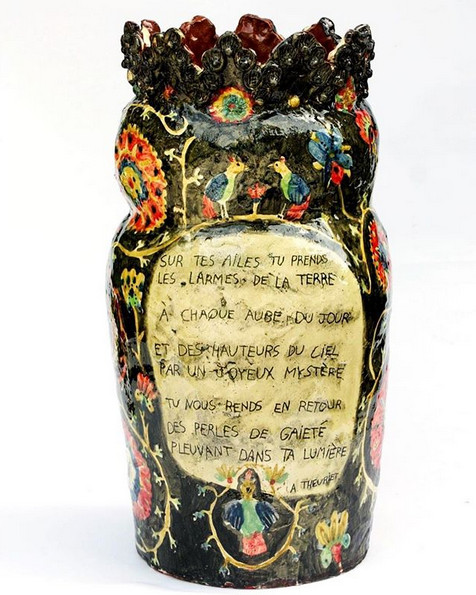 SUR TES AILES TU PRENDS
LES LARMES DE LA TERRE
A CHAQUE AUBE DU JOUR
ET DES HAUTEURS DU CIEL
PAR UN JOYEUX MYSTÈRE
TU NOUS RENDS EN RETOUR
DES PERLES DE GAIETÉ
PLEUVANT DANS TA LUMIÈRE
A THEURIET